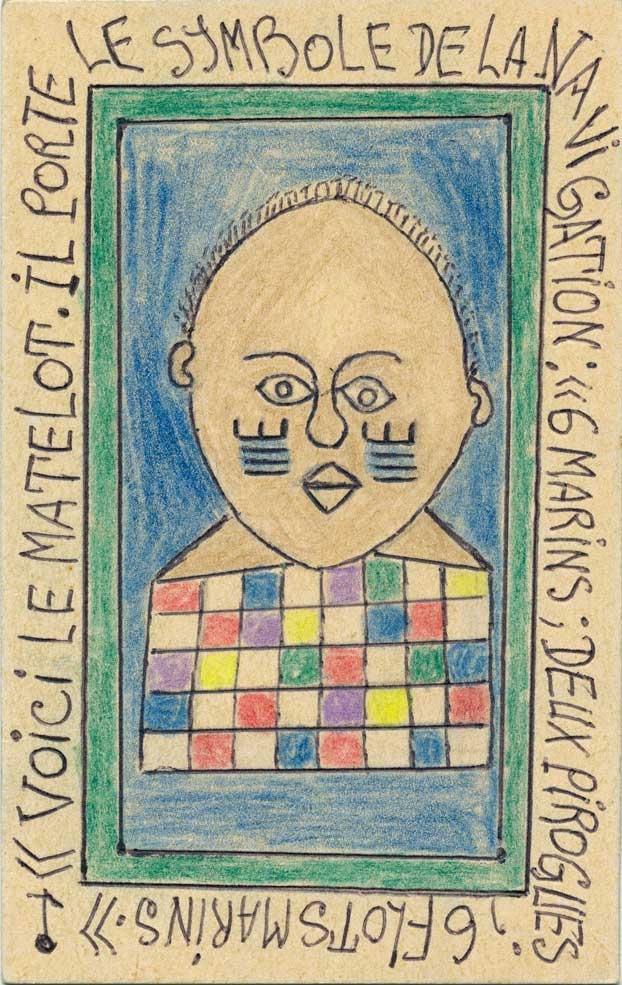 « VOiCi LE MATELOT. iL PORTE
LE SYMBOLE DE LA NAVi
GATiON : «6 MARiNS ; DEUX PiROGUES
; 6 FLOTS MARiNS.»